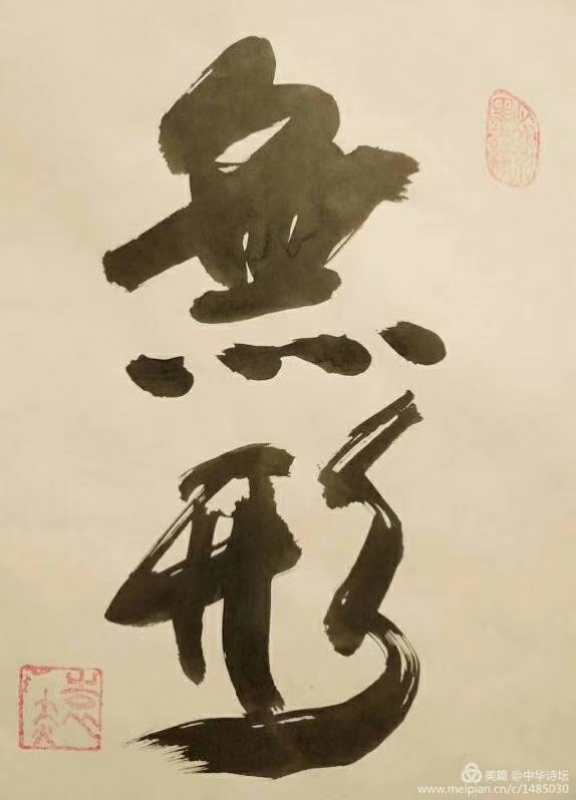 無形
美篇 @中华诗坛
www.meipian.cn/c/1485030